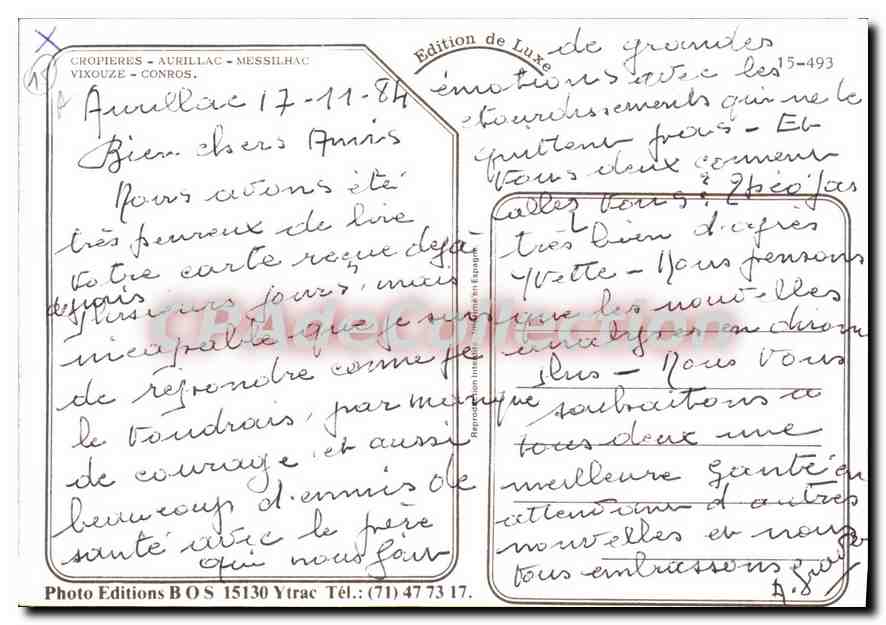 CROPIERES - AURILLAC - MESSILHAC
VIXOUZE - CONROS.
Edition de Luxe
15-493
15
Aurillac 17-11-84
Bien chers Amis
Nous avons été
très heureux de lire
votre carte reçue déjà
depuis plusieurs jours, mais
incapable que je suis
de répondre comme je
le voudrais, par manque
de courage, et aussi
beaucoup d'ennuis de
santé avec le frère
qui nous fait
de grandes
émotions avec les
étourdissements qui ne le
quittent pas - Et
vous deux comment
allez vous?
très bien d'après
Yvette - Nous pensons
que les nouvelles
analyses en diront
plus - Nous vous
souhaitons a
tous deux une
meilleure santé en
attendant d'autres
nouvelles et nous
vous embrassons
Reproduction Interdite - Imprimé en Espagne
CPAdeCollection
Photo Editions BOS 15130 Ytrac Tél.: (71) 47 73 17.